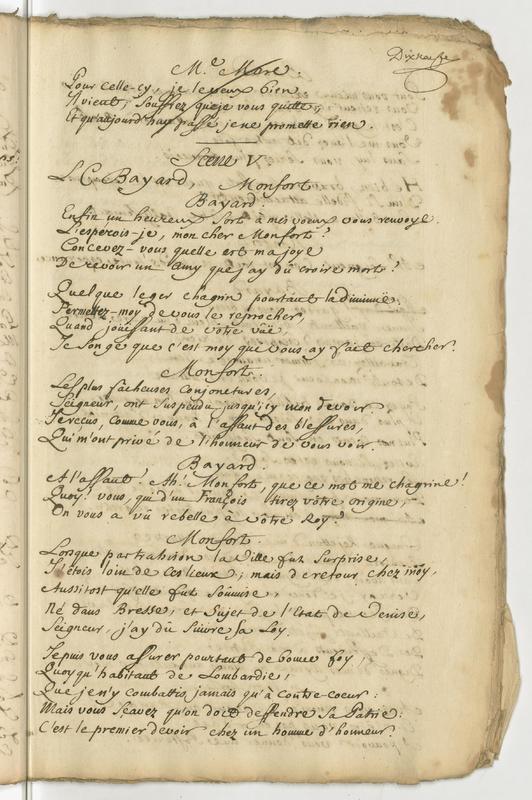 Dixneufe
M.e Mere.
Pour celle-cy, je le veux bien.
Avient, Souffrez que je vous quitte,
Et qu'aujourd'huy passé je ne promette rien.
Scene V.
L. C. Bayard, Monfort
Bayard
Enfin un heureux Sort à mes voeux vous renvoye.
L'esperois-je, mon cher Monfort?
Concevez-vous quelle est ma joye
De revoir un Amy que j'ay dû croire mort?
Quelque leger chagrin pourtant la diminüe.
Permettez-moy de vous le reprocher,
Quand joüissant de vôtre vüe
Je Songe que c'est moy qui vous ay fait chercher.
Monfort.
Les plus facheuses conjonctures,
Seigneur, ont Suspendu jusqu'icy mon devoir.
J'ereçus, comme vous, à l'assaut des blessures,
Qui m'ont privé de l'honneur de vous voir.
Bayard.
A l'assaut! Ah! Monfort, que ce mot me chagrine!
Quoy! vous, qui d'un François tirez vôtre origine,
On vous a vû rebelle à vôtre Roy?
Monfort.
Lorsque par trahison la Ville fut Surprise,
J'étois loin de ces lieux; mais de retour chez moy,
Aussitost qu'elle fut Soumise,
Né dans Bresse, et Sujet de l'Etat de Venise,
Seigneur, j'ay dû Suivre Sa Loy.
Je puis vous assurer pourtant de bonne foy,
Quoy qu'habitant de Lombardie,
Que je n'y combattis jamais qu'à contre-coeur:
Mais vous Sçavez qu'on doit deffendre Sa Patrie:
C'est le premier devoir chez un homme d'honneur.